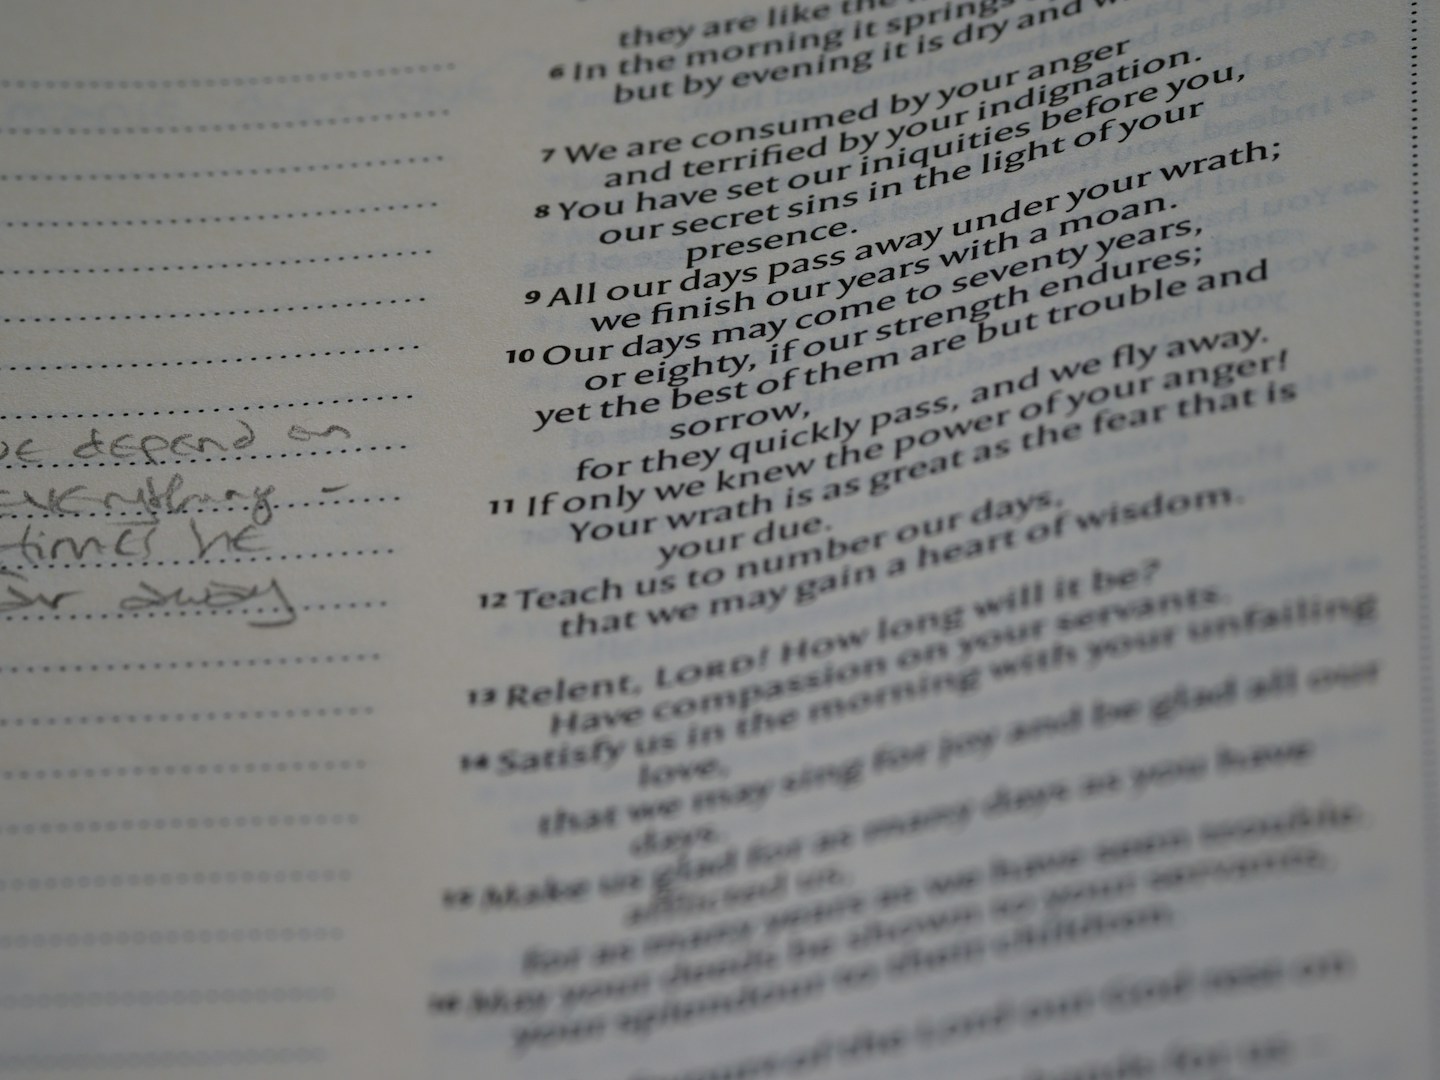 depend on
times he
away
they are like the
6 In the morning it springs
but by evening it is dry and
7 We are consumed by your anger
and terrified by your indignation.
8 You have set our iniquities before you,
our secret sins in the light of your
presence.
9 All our days pass away under your wrath;
we finish our years with a moan.
10 Our days may come to seventy years,
or eighty, if our strength endures;
yet the best of them are but trouble and
sorrow,
for they quickly pass, and we fly away.
11 If only we knew the power of your anger!
Your wrath is as great as the fear that is
your due.
12 Teach us to number our days,
that we may gain a heart of wisdom.
13 Relent, LORD! How long will it be?
Have compassion on your servants.
14 Satisfy us in the morning with your unfailing
love,
that we may sing for joy and be glad all our
days.
15 Make us glad for as many days as you have
afflicted us,
for as many years as we have seen trouble.
16 May your deeds be shown to your servants,
your splendour to their children.
of the Lord our God rest on
hands for us –